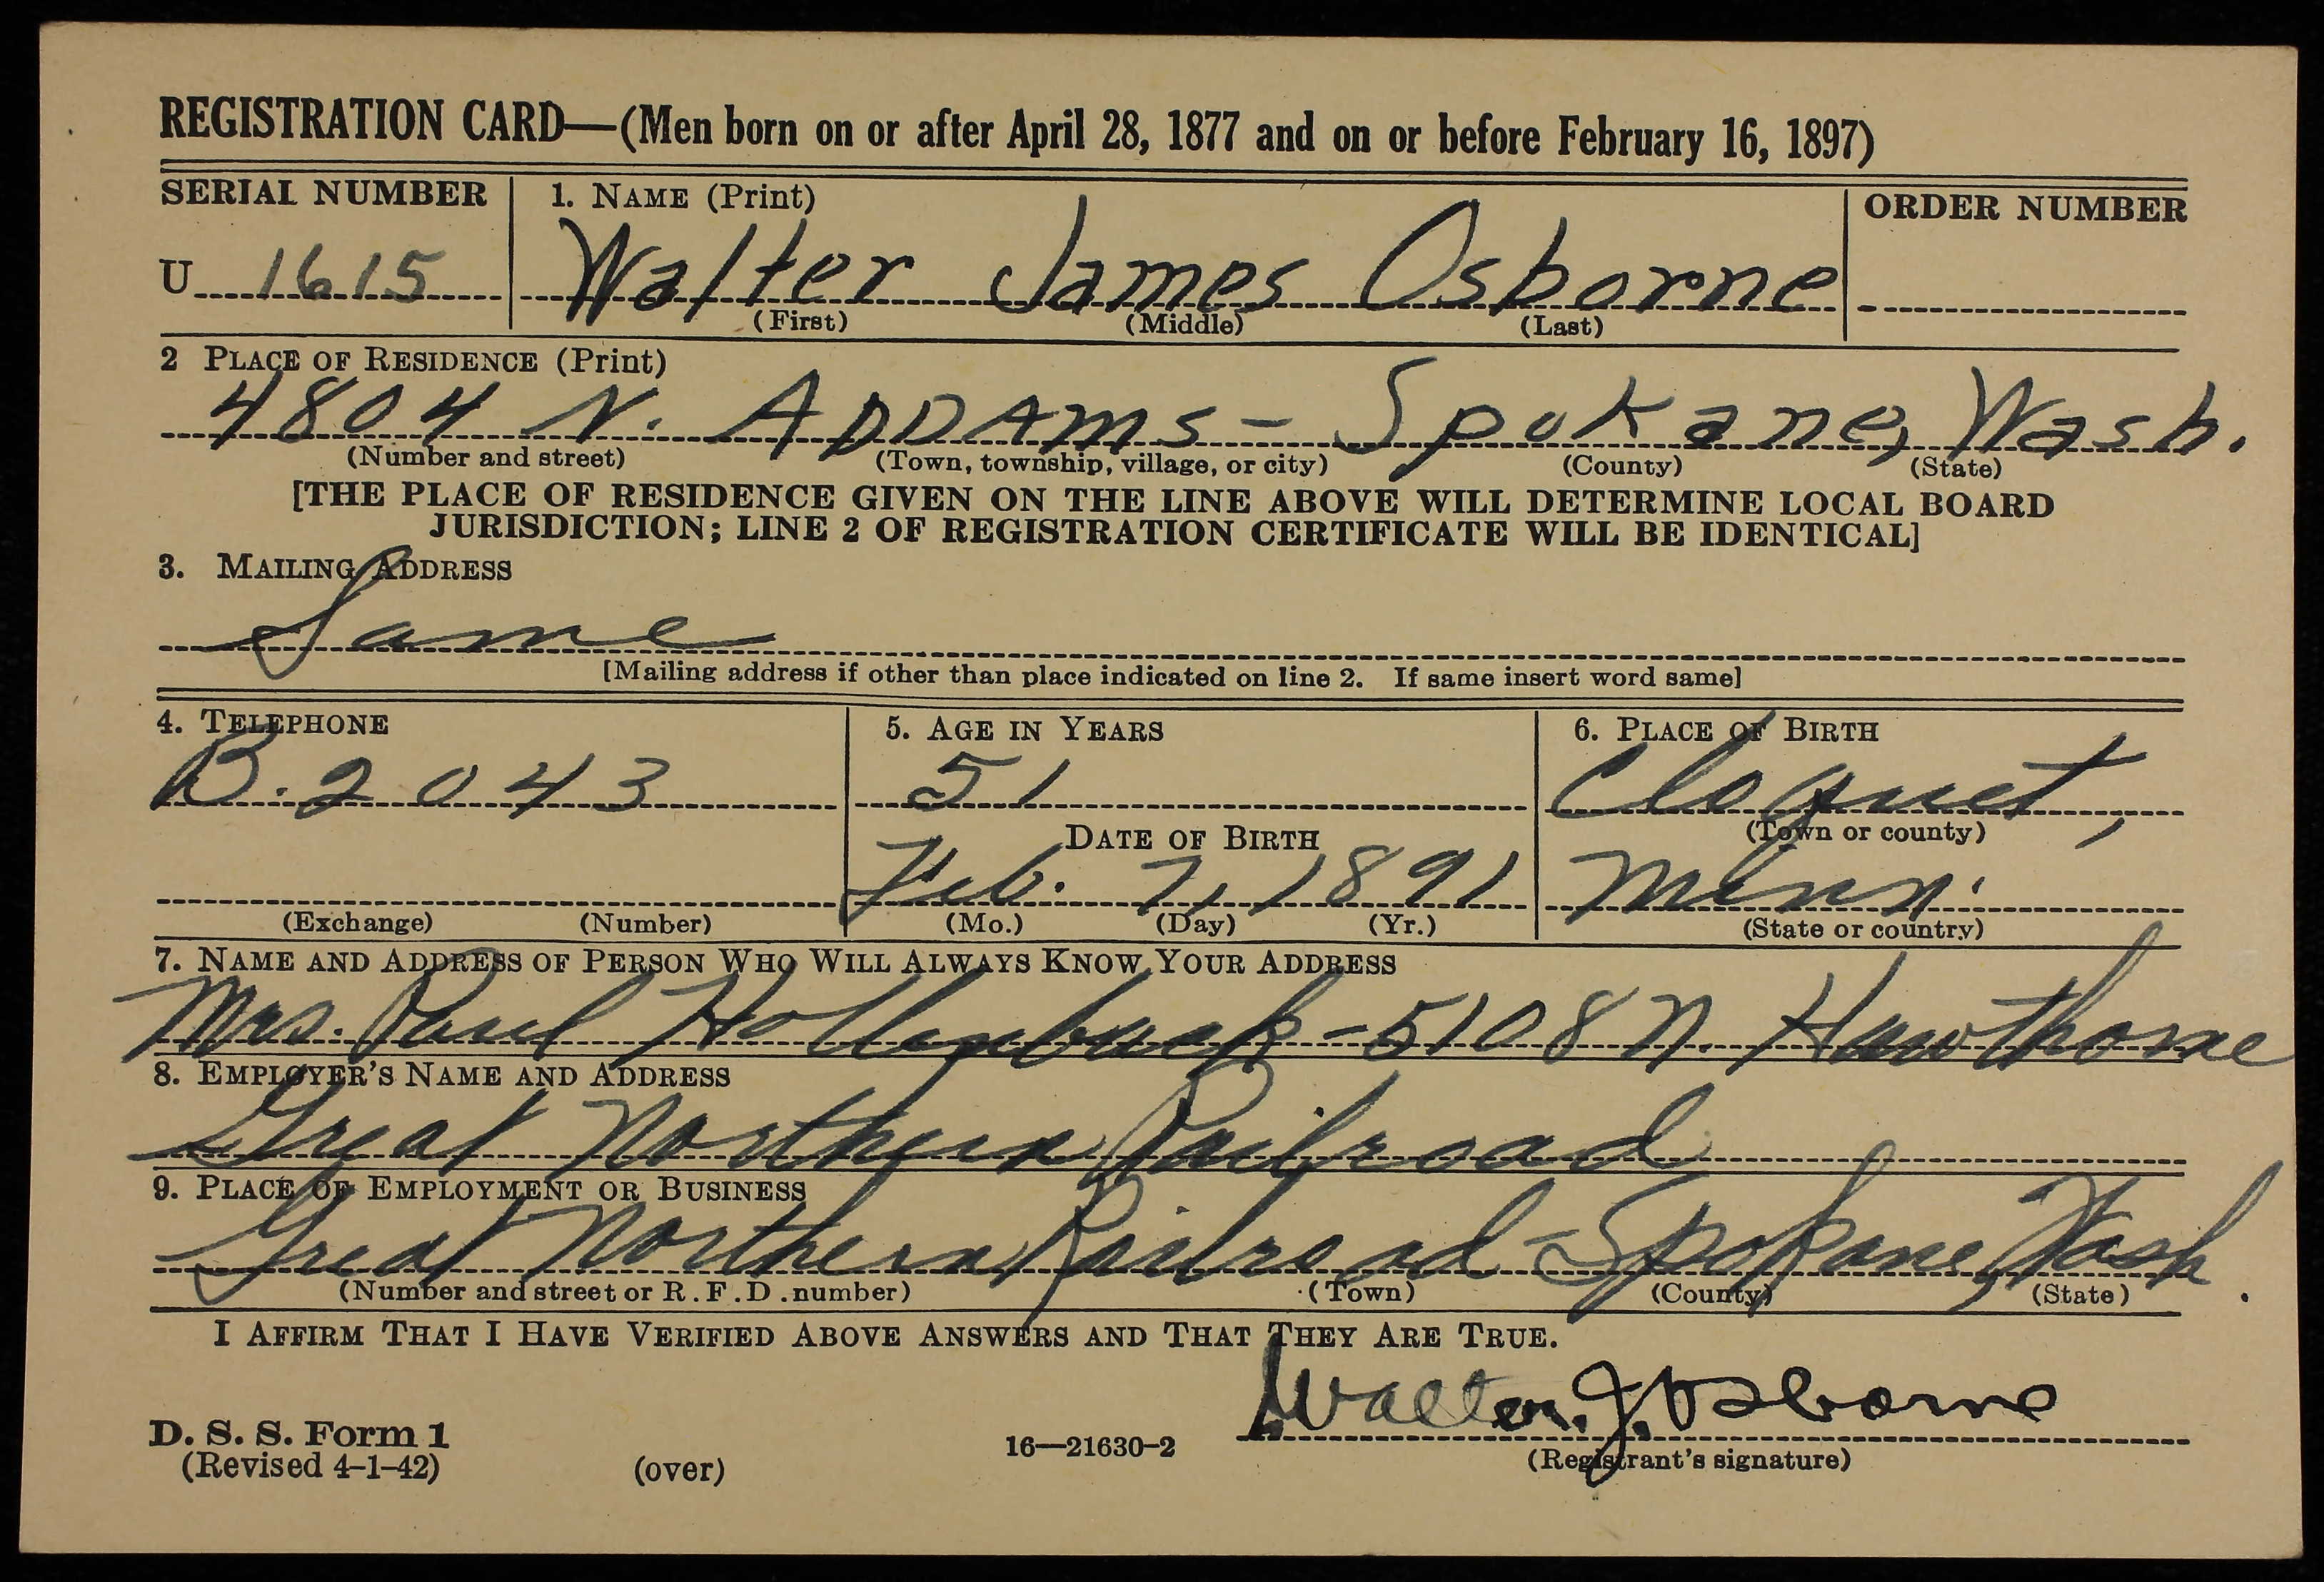 REGISTRATION CARD—(Men born on or after April 28, 1877 and on or before February 16, 1897)
SERIAL NUMBER 1. NAME (Print) ORDER NUMBER
U 1615 Walter James Osborne
(First) (Middle) (Last)
2 PLACE OF RESIDENCE (Print)
4804 N. ADDAMS - Spokane, Wash.
(Number and street) (Town, township, village, or city) (County) (State)
[THE PLACE OF RESIDENCE GIVEN ON THE LINE ABOVE WILL DETERMINE LOCAL BOARD
JURISDICTION; LINE 2 OF REGISTRATION CERTIFICATE WILL BE IDENTICAL]
3. MAILING ADDRESS
Same
[Mailing address if other than place indicated on line 2. If same insert word same]
4. TELEPHONE 5. AGE IN YEARS 6. PLACE OF BIRTH
B. 2043 51 Cloquet,
DATE OF BIRTH (Town or county)
Feb. 7, 1891 Minn.
(Exchange) (Number) (Mo.) (Day) (Yr.) (State or country)
7. NAME AND ADDRESS OF PERSON WHO WILL ALWAYS KNOW YOUR ADDRESS
Mrs. Paul Hollenback - 5108 N. Hawthorne
8. EMPLOYER'S NAME AND ADDRESS
Great Northern Railroad
9. PLACE OF EMPLOYMENT OR BUSINESS
Great Northern Railroad - Spokane, Wash.
(Number and street or R.F.D. number) (Town) (County) (State)
I AFFIRM THAT I HAVE VERIFIED ABOVE ANSWERS AND THAT THEY ARE TRUE.
Walter. J. Osborne
D. S. S. Form 1
(Revised 4-1-42) (over) 16—21630-2 (Registrant's signature)